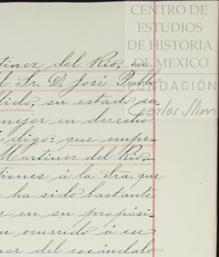 CENTRO DE
ESTUDIOS
DE HISTORIA
DE MEXICO
FUNDACIÓN
Carlos Slim
tinez del Rio,
l Sr. D. José Pabl
lido, su estado se
mejor en derecho
digo: que empe
Martinez del Rio
tiones á la otra, que
ha sido bastante
e en su propósi
n ocurrido á ese
nor del escándalo